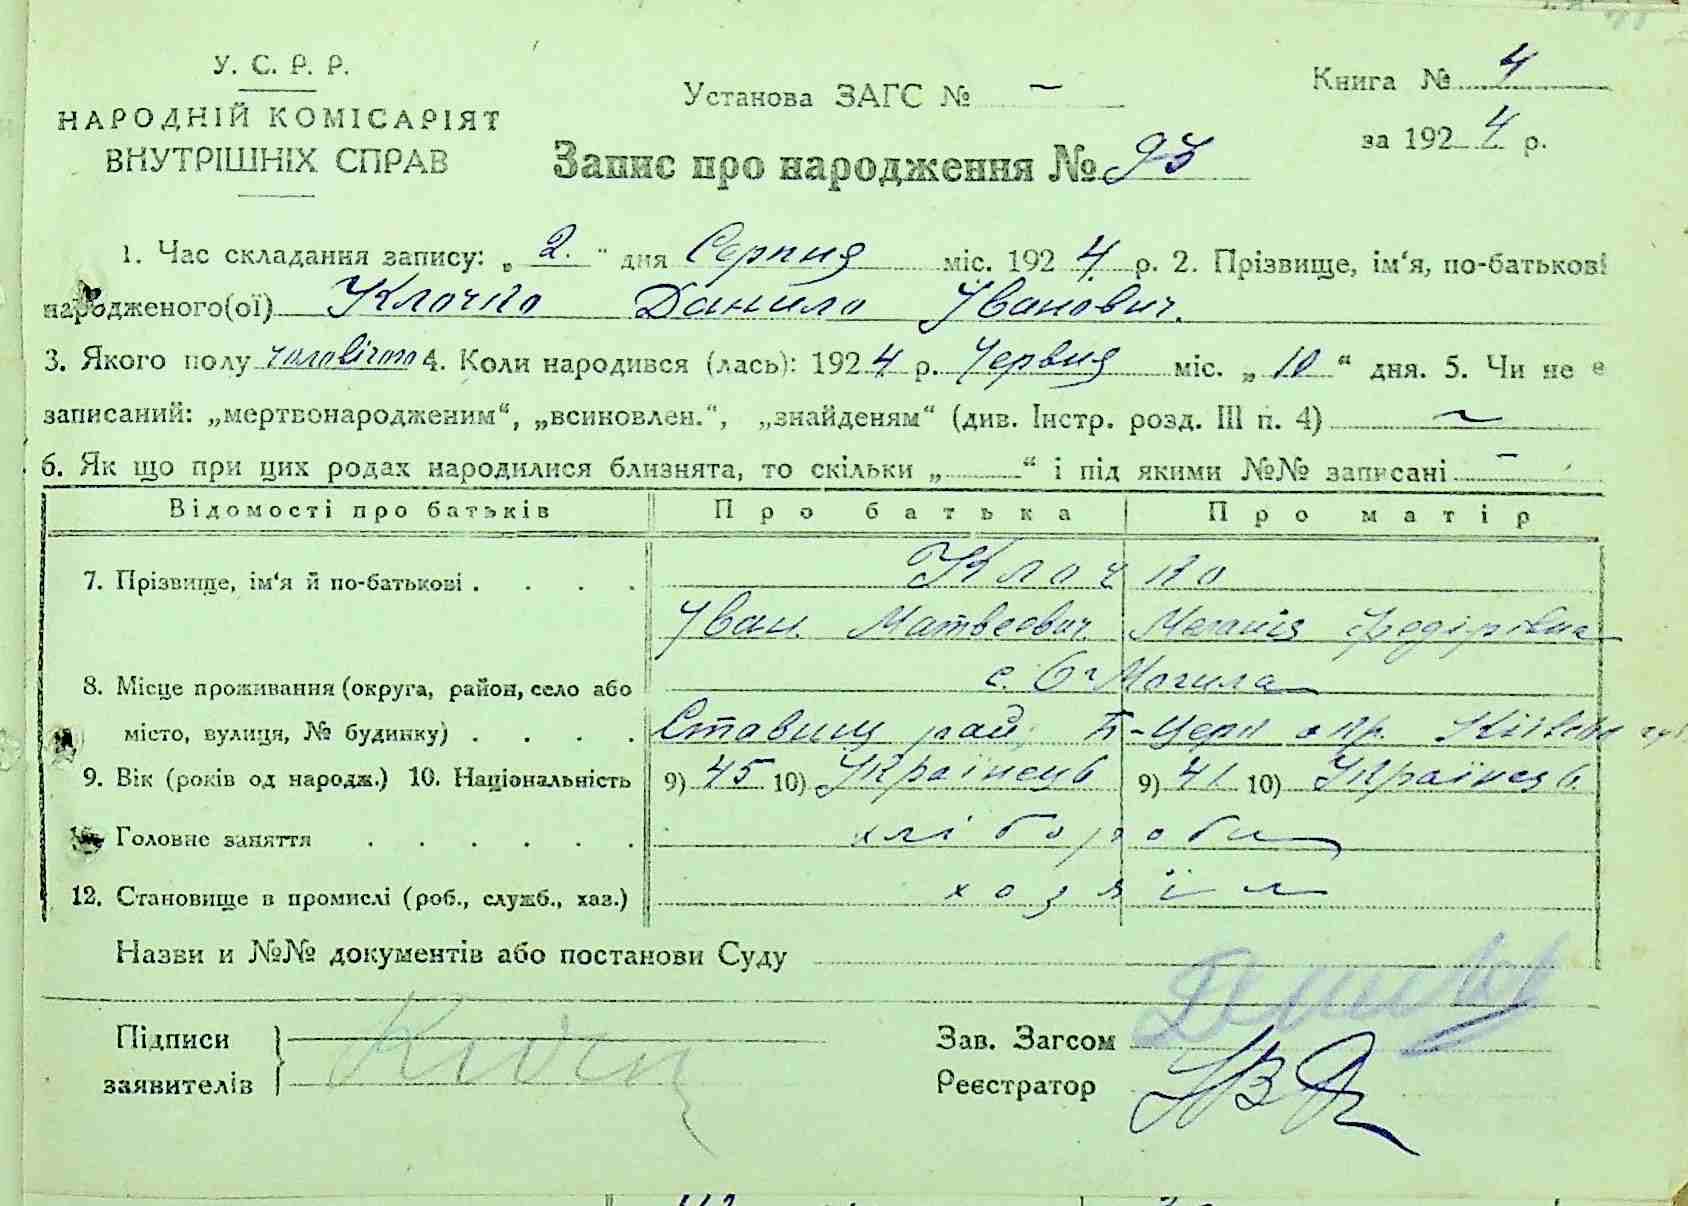 У. С. Р. Р.
НАРОДНІЙ КОМІСАРІЯТ
ВНУТРІШНІХ СПРАВ
Установа ЗАГС № –
Книга № 4
за 1924 р.
Запис про народження № 93
1. Час складання запису: „2.“ дня Серпня міс. 1924. р. 2. Прізвище, ім'я, по-батькові
народженого(ої) Клочко Данило Іванович.
3. Якого полу чоловічого 4. Коли народився (лась): 1924 р. Червня міс. „10“ дня. 5. Чи не є
записаний: „мертвонародженим“, „всиновлен.“, „знайденям“ (див. Інстр. розд. III п. 4) ~
6. Як що при цих родах народилися близнята, то скільки „ “ і під якими №№ записані –
Відомості про батьків Про батька Про матір
7. Прізвище, ім'я й по-батькові . . . . Клочко
Іван. Матвеевич. Меланія Федірівна
8. Місце проживання (округа, район, село або с. Могила
місто, вулиця, № будинку) . . . . Ставищ рай, Б-Церк окр. Київсько губ
9. Вік (років од народж.) 10. Національність 9) 45 10) Українець 9) 41 10) Українець
Головне заняття . . . . . . хлібороби
12. Становище в промислі (роб., служб., хаз.) хозяїн
Назви и №№ документів або постанови Суду
Підписи
заявителів
Зав. Загсом
Реєстратор